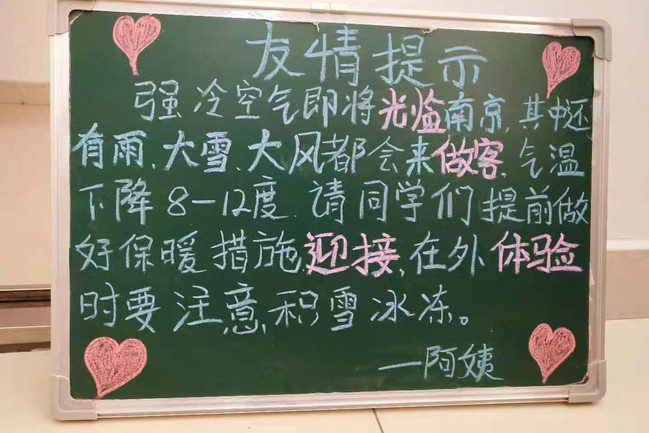 友情提示
强冷空气即将光临南京,其中还
有雨、大雪、大风都会来做客,气温
下降8-12度.请同学们提前做
好保暖措施,迎接,在外体验
时要注意积雪冰冻。
—阿姨